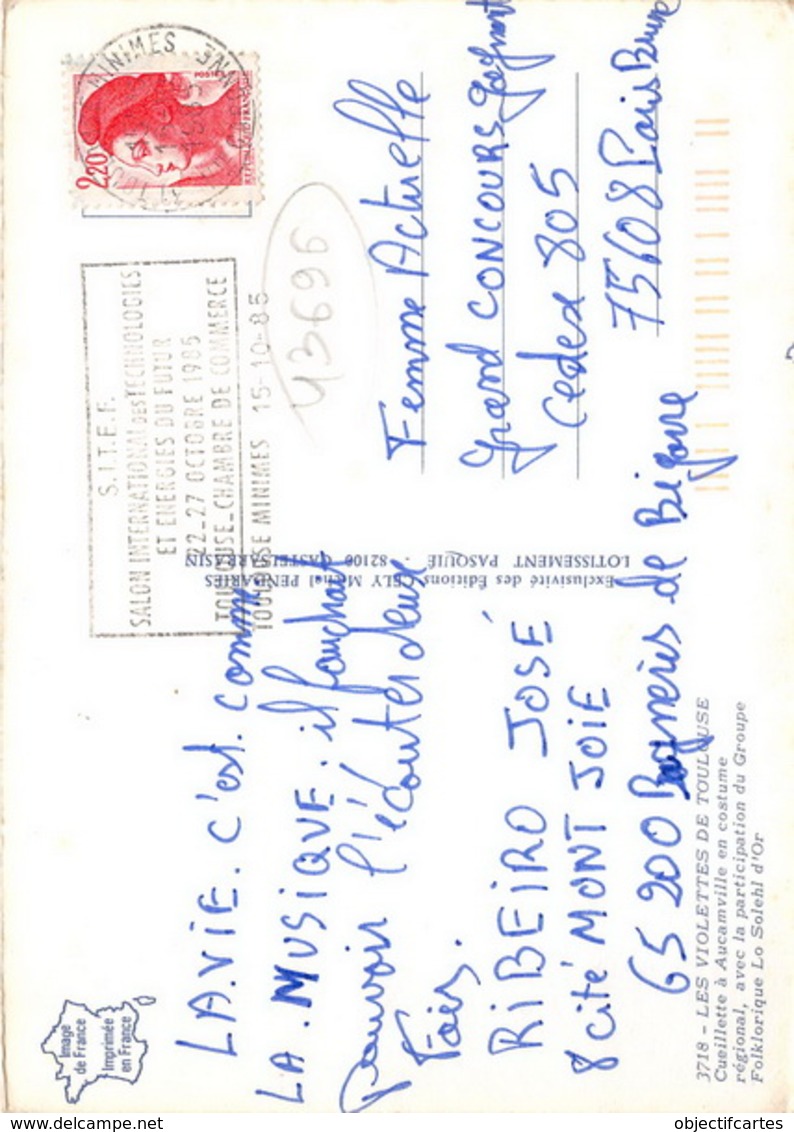 Image
de France
Imprimée
en France
LA.VIE. c'est. comme
LA. MUSIQUE. il faudrait
pouvoir l'écouter deux
Fois.
RIBEIRO JOSÉ
8 cité MONT JOIE
65 200 Bagnères de Bigorre
3718 - LES VIOLETTES DE TOULOUSE
Cueillette à Aucamville en costume
régional, avec la participation du Groupe
Folklorique Lo Solehl d'Or
Exclusivité des Éditions CELY Michel PENDARIES
LOTISSEMENT PASQUIÉ - 82100 CASTELSARRASIN
S.I.T.E.F.
SALON INTERNATIONAL DES TECHNOLOGIES
ET ENERGIES DU FUTUR
22-27 OCTOBRE 1985
TOULOUSE_CHAMBRE DE COMMERCE
TOULOUSE MINIMES 15-10-85
MINIMES
POSTES
2,20
43696
Femme Actuelle
grand CONCOURS gagnant
Cedex 805
75608 Paris Brune
delcampe.net
objectifcartes